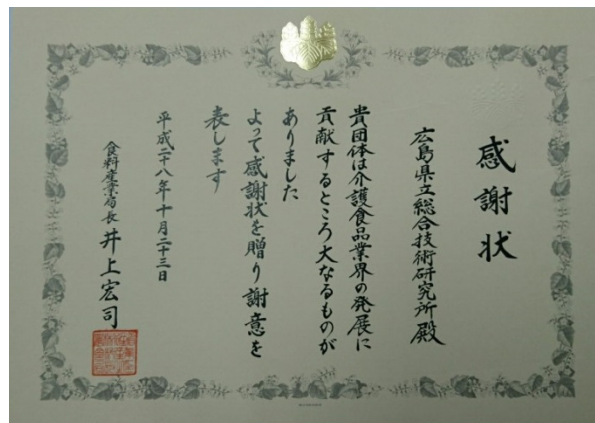 感謝状
広島県立総合技術研究所殿
貴団体は介護食品業界の発展に
貢献するところ大なるものが
ありました
よって感謝状を贈り謝意を
表します
平成二十八年十月二十三日
食料産業局長 井上宏司